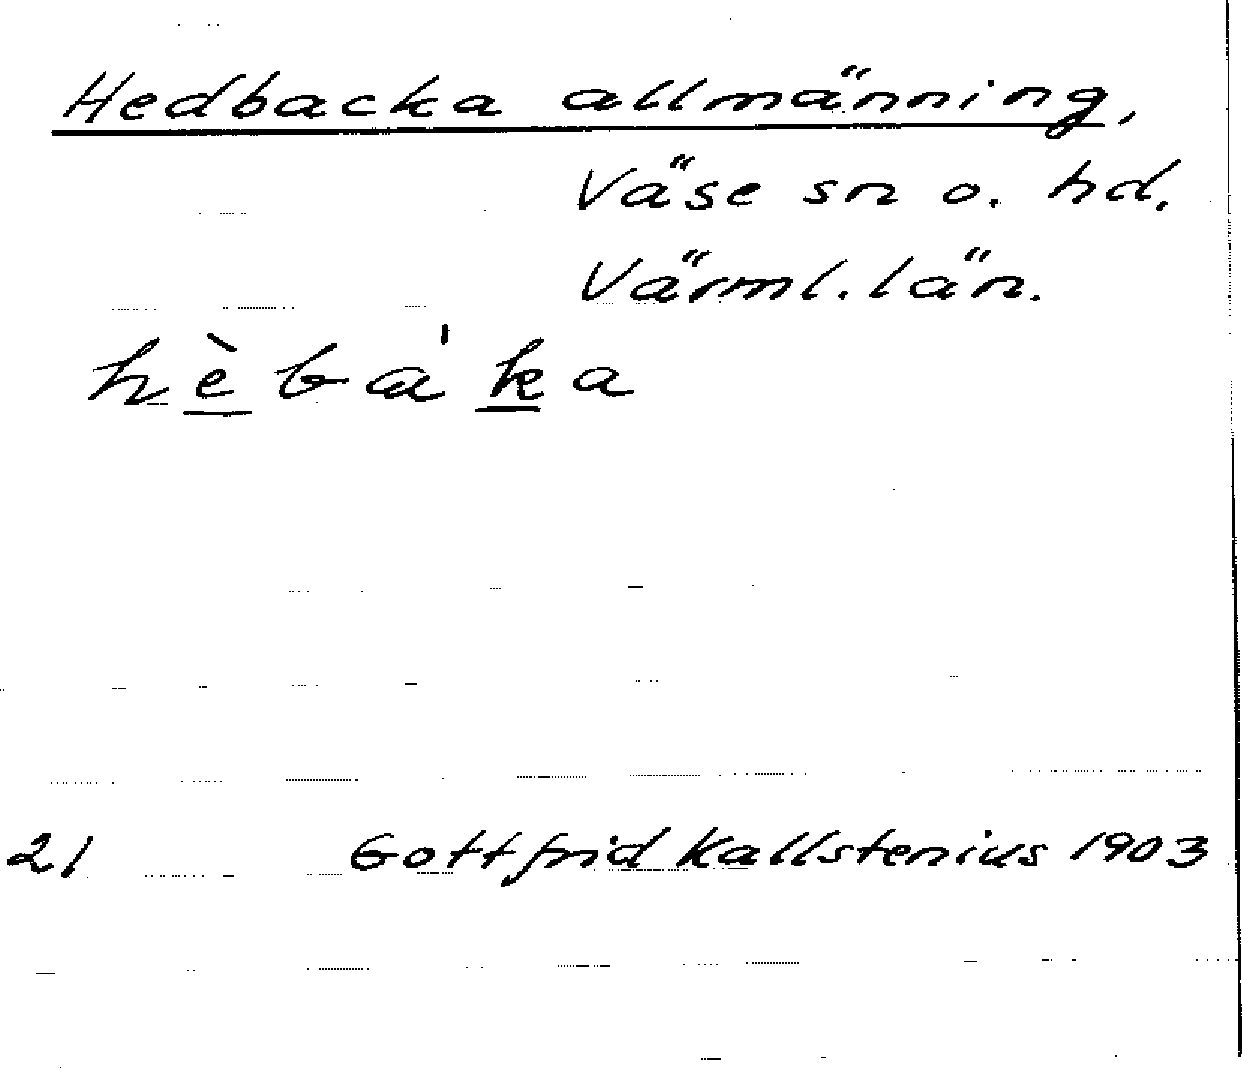 Hedbacka allmänning,
Väse sn o. hd.
Värml. län.
hèbá'ka
21 Gottfrid Kallstenius 1903